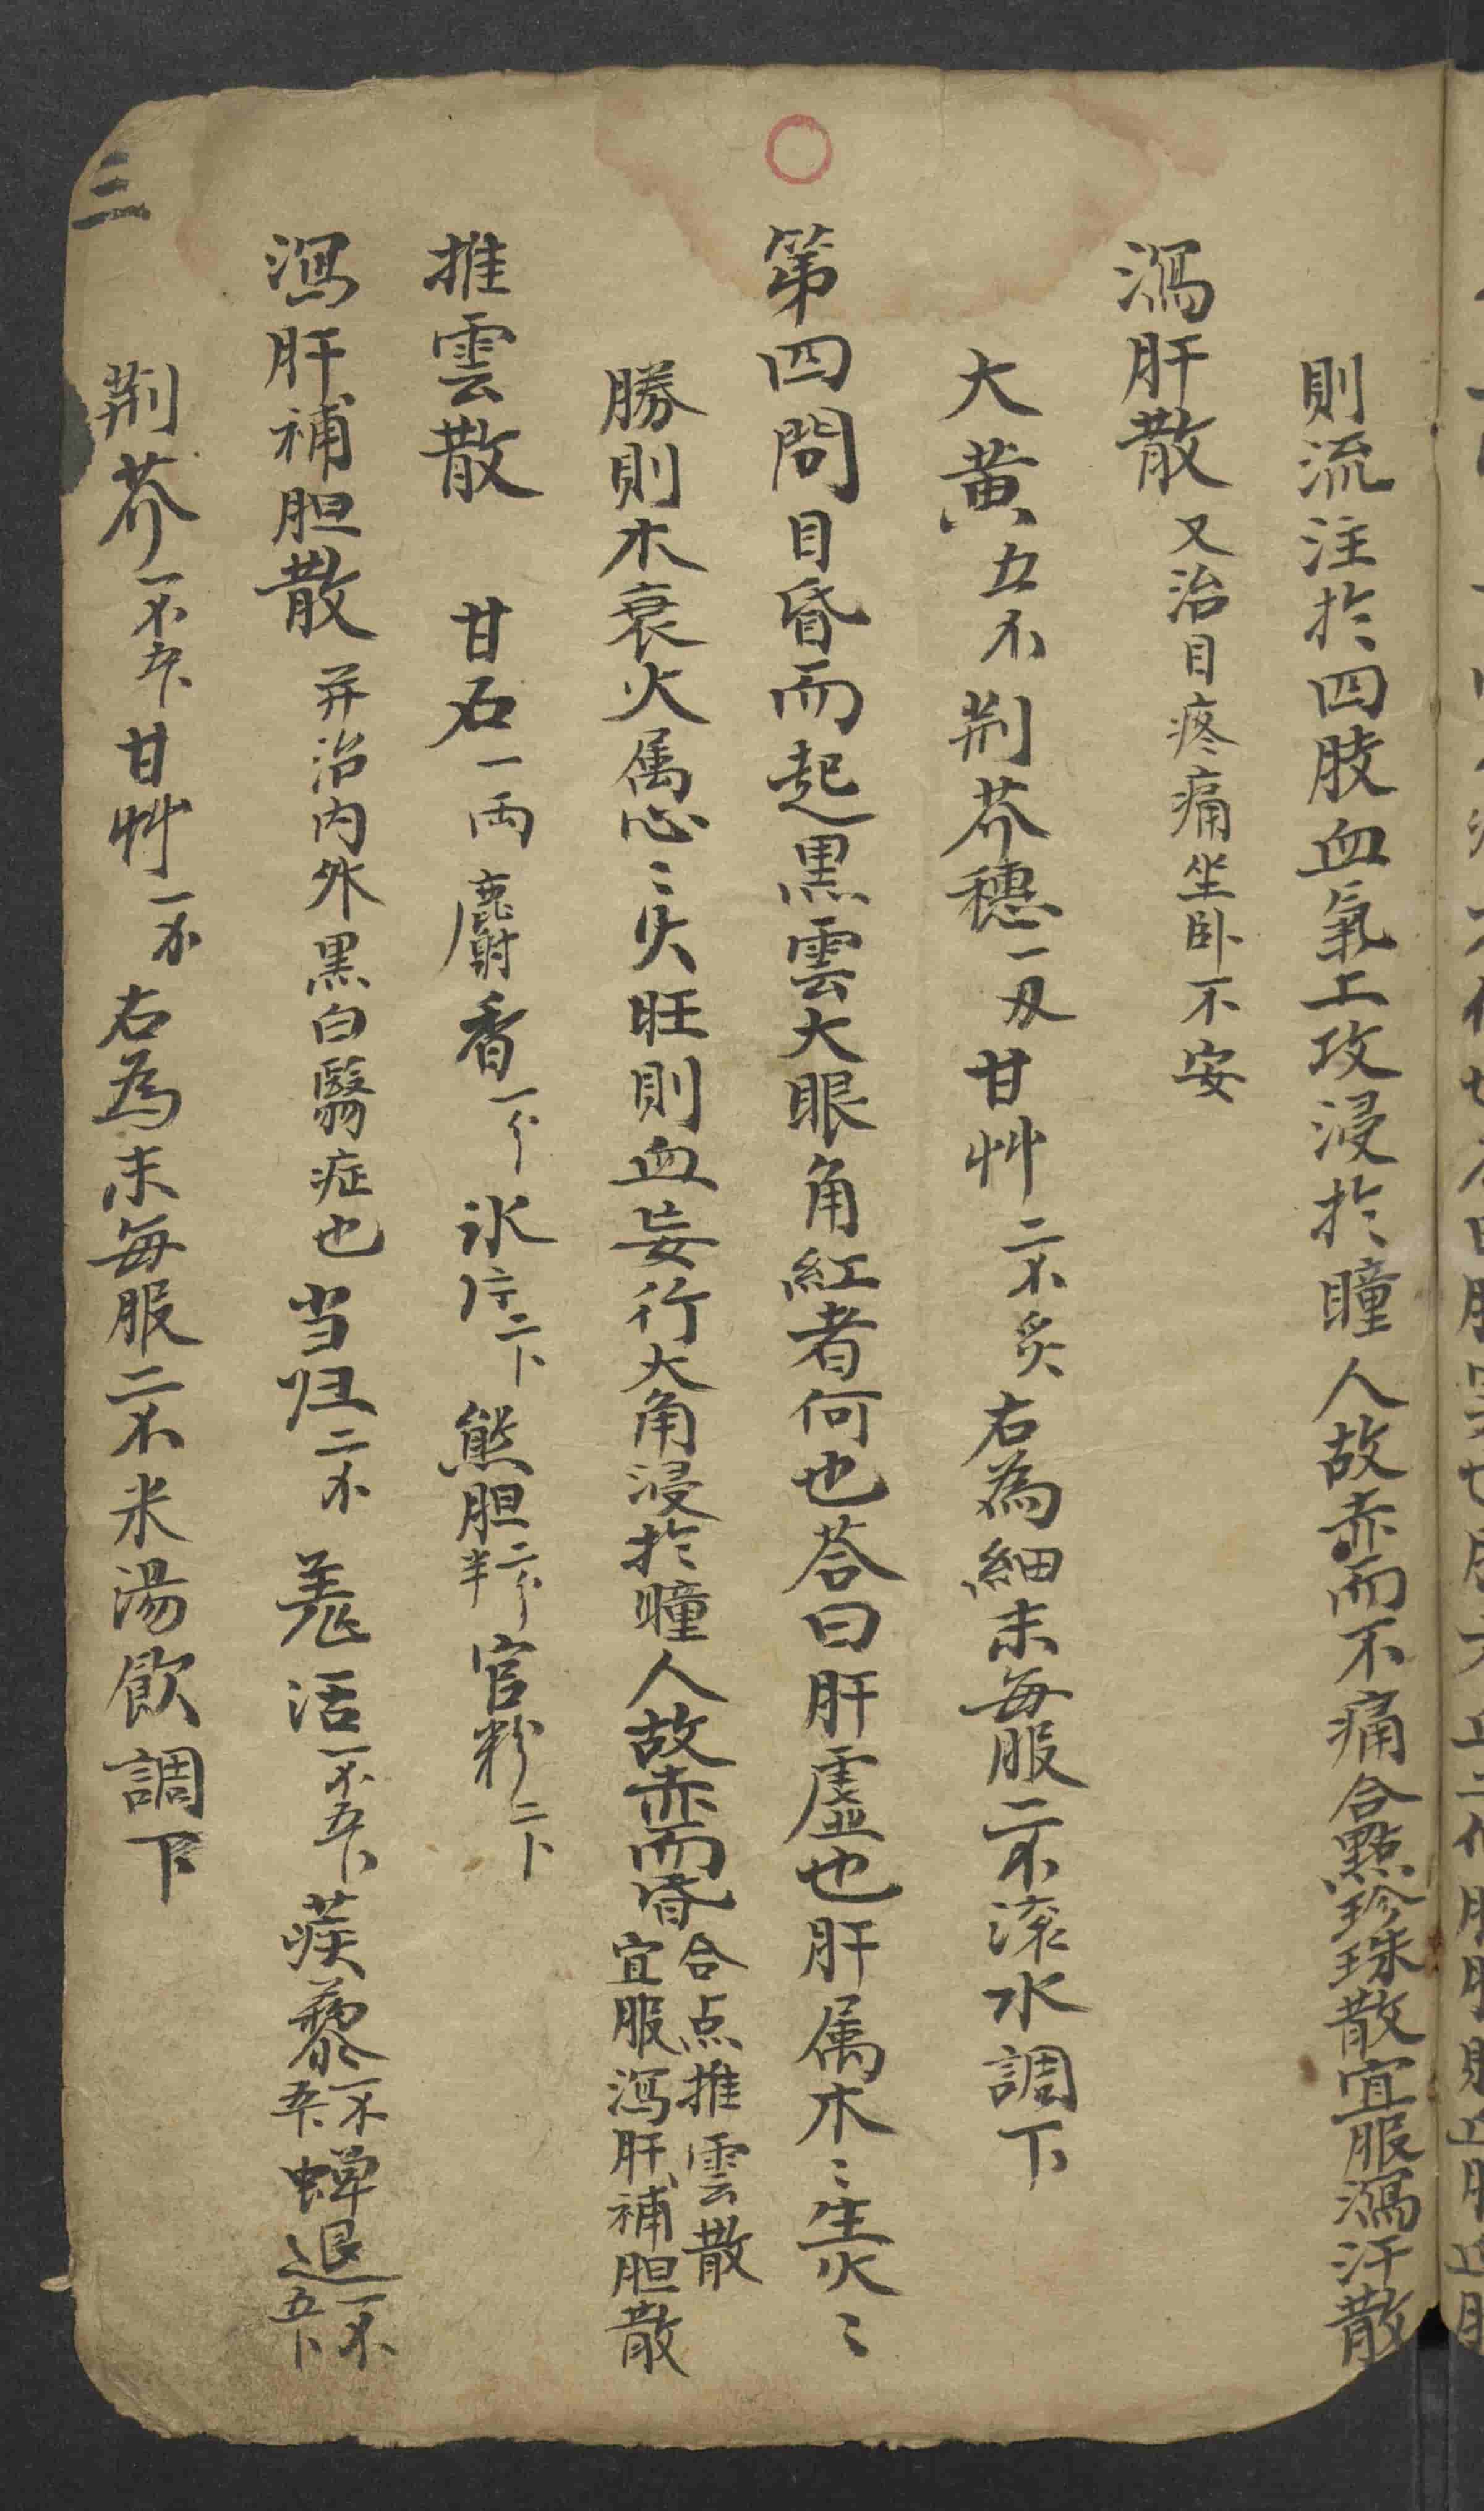 則流注於四肢血氣上攻浸於瞳人故赤而不痛合點珍珠散宜服瀉汗散
瀉肝散 又治目疼痛坐卧不安
大黄五不荆芥穗一又甘艸二不炙右為細末每服二不滚水調下
第四問目昏而起黒雲大眼角紅者何也荅曰肝虛也肝属木〻生火〻
勝則木衰火属心〻火旺則血妄行大角浸於瞳人故赤而昏合点推雲散
宜服瀉肝補胆散
推雲散 甘石一両麝香一个氷片二卜熊胆二个半官粉二卜
瀉肝補胆散 并治内外黒白翳症也当归二不羌活一不五卜蒺藜一不五卜蝉退一不五卜
荆芥一不五卜甘艸一不右為末每服二不米湯飲調下
三